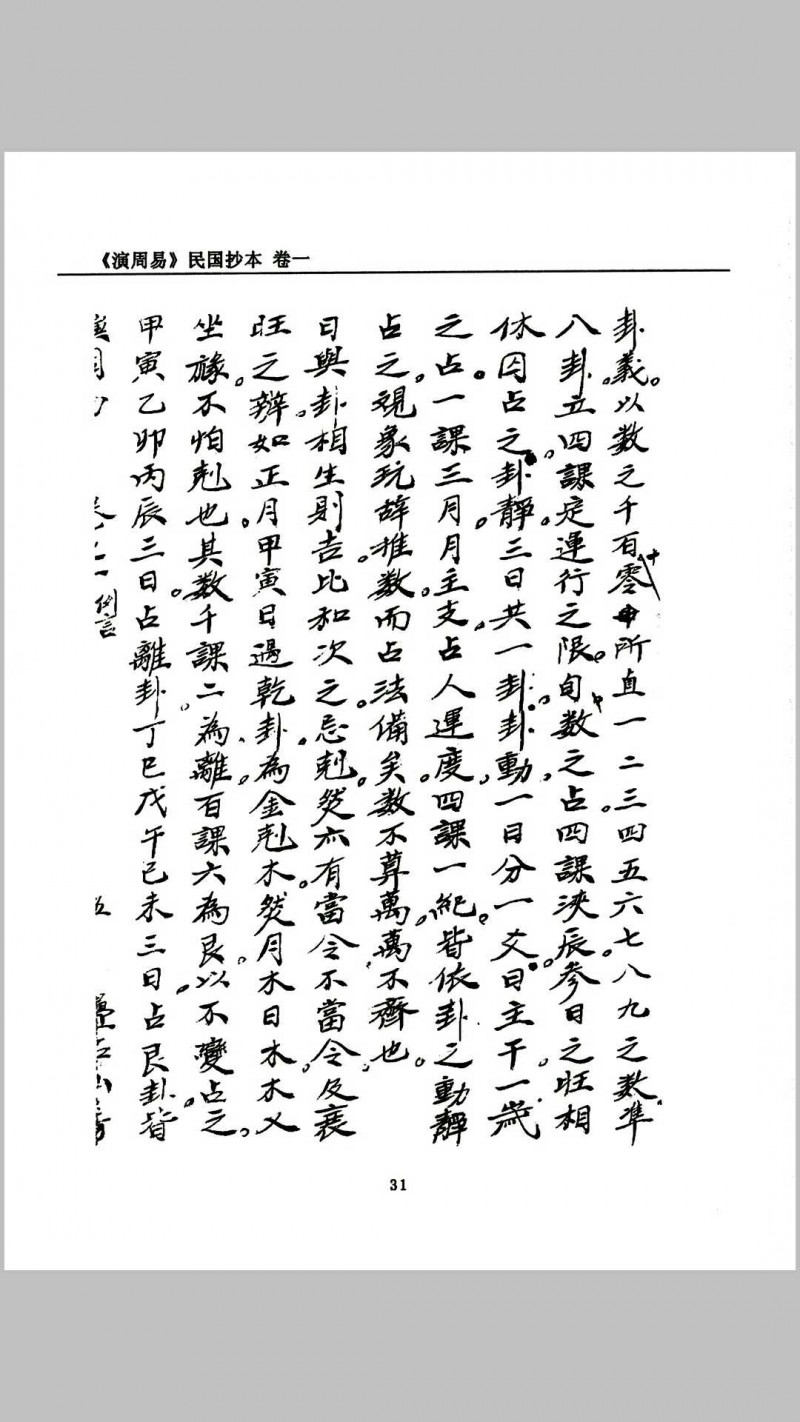 《演周易》民国抄本 卷一
卦義。以数之千百零十所直一二三四五六七八九之数準
八卦立四課定運行之限。旬数之占四課浹辰。参日之旺相
休囚占之。卦靜三日共一卦。卦動一日分一爻。日主干。一歲
之占。一課三月。月主支。占人運度。四課一紀。皆依卦之動靜
占之。視象玩辞。推数而占法備矣。数不算萬。萬不齊也。
日與卦相生則吉。比和次之。忌剋。然亦有當令不當令。及衰
旺之辨。如正月甲寅日遇乾卦。為金剋木。然月木日木木乂
坐祿。不怕剋也。其数千課二為離。百課六為艮。以不變占之。
甲寅乙卯丙辰三日占離卦。丁巳戊午己未三日占艮卦。皆
卷之一 例言
五
31